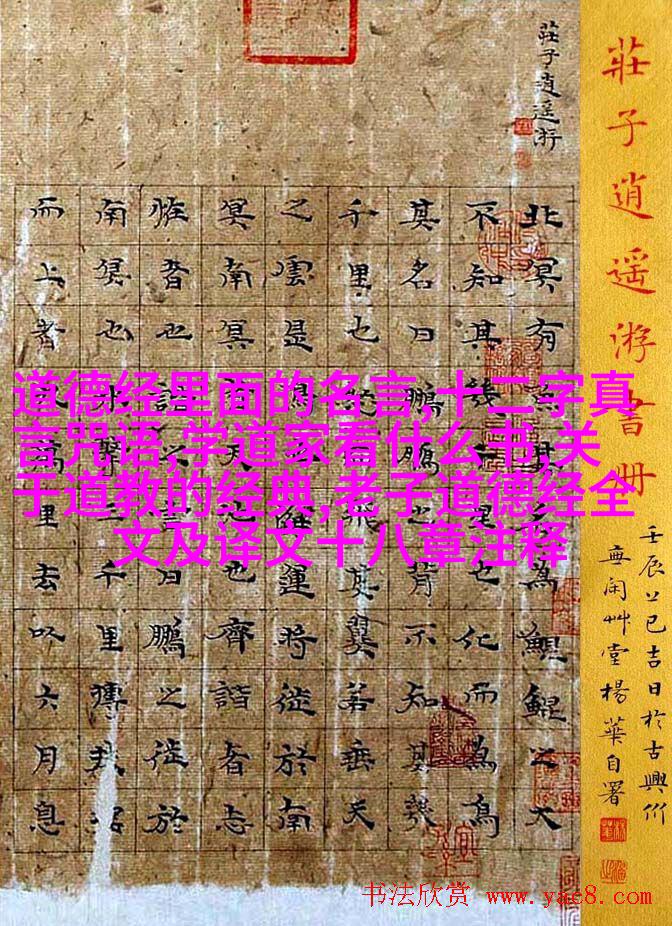 莊子逍遥游書册
壬辰上巳吉日於古興竹
無闲艸堂楊華自署
莊子逍遥游
北冥有魚其名為鯤鯤之大
不知其幾千里也化而為鳥
其名曰鵬鵬之背不知其幾
千里也怒而飛其翼若垂天
之雲是鳥也海運將徙於南
冥南冥者天池也齊諧者志
恠者也諧之言曰鵬之徙於
南冥也水擊三千里摶扶摇
而上者九萬里去以六月息
道德经里面的名言,十二字真
言咒语,学道家看什么书,关
于道教的经典,老子道德经全
文及译文十八章注释
书法欣赏 www.yac8.com